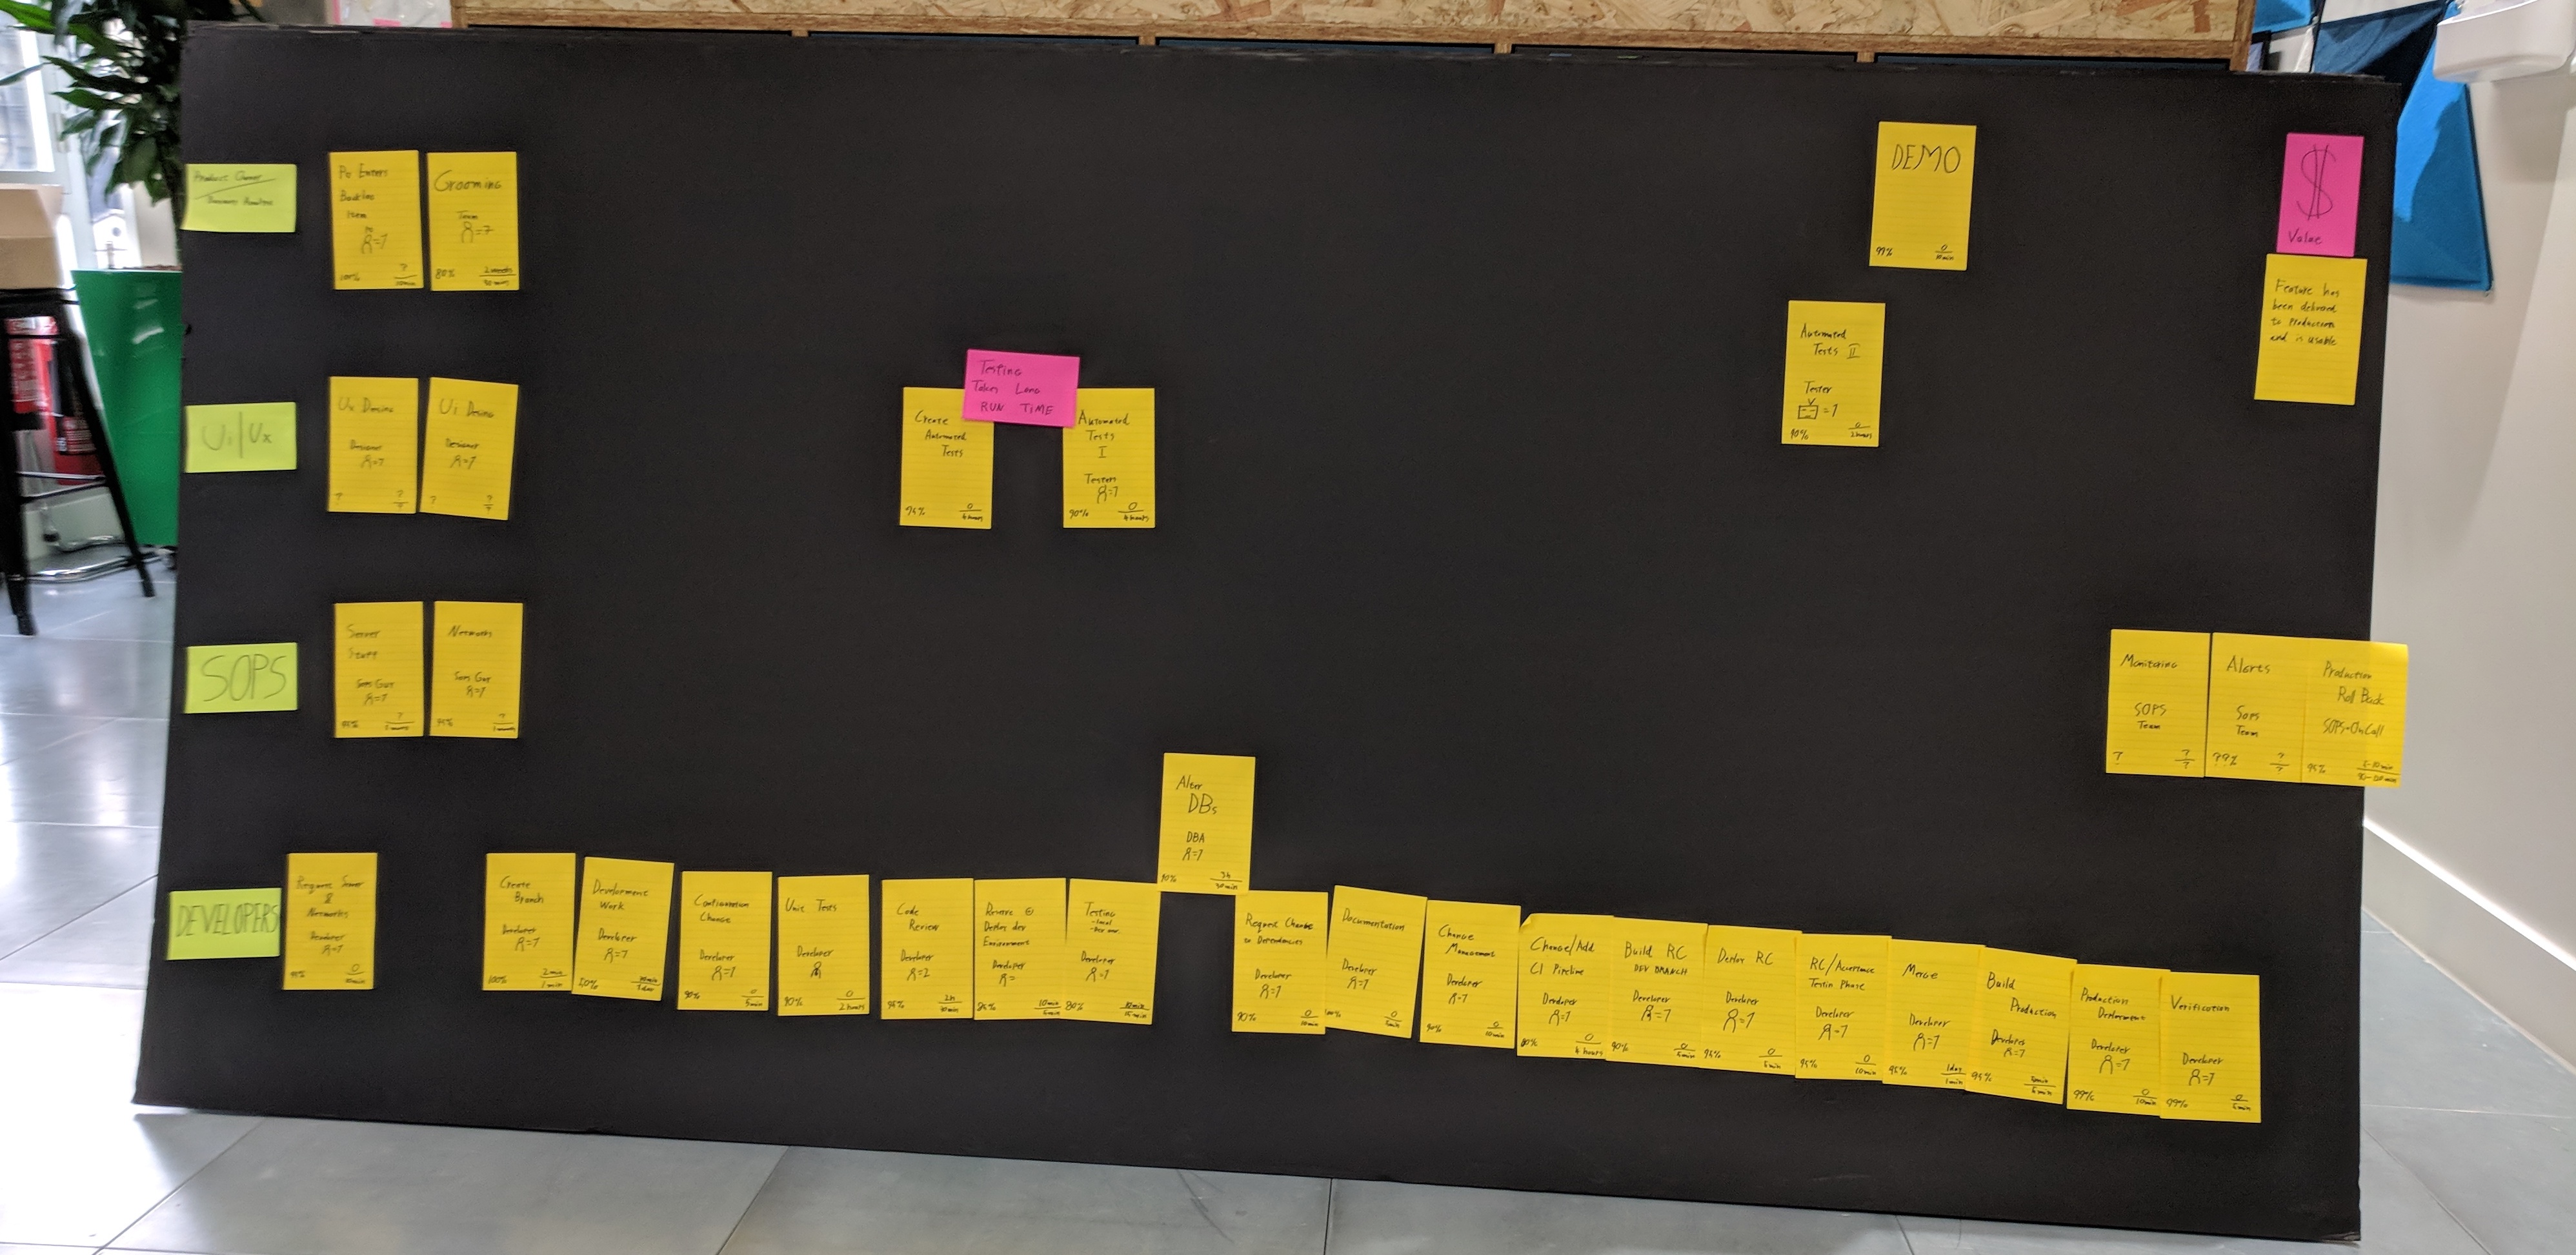 Product Owner
Business Analyst
Po Enters
Backlog
Item
Po
=1
100%
?
10min
Grooming
Team
=7
80%
2 weeks
30 mins
DEMO
99%
0
$
Value
Feature has
been delivered
to Production
and is usable
Ui/Ux
Ux Desing
Designer
=1
?
?
?
Ui Desing
Designer
=1
?
?
?
Testing
Takes Long
RUN TIME
Create
Automated
Tests
0
4 hours
Automated
Tests
I
Testers
=1
90%
0
4 hours
Automated
Tests II
Tester
=1
90%
0
2 hours
SOPS
Server
Stuff
=1
?
Network
=1
?
Monitoring
SOPS
Team
?
?
?
Alerts
Sops
Team
??%
?
?
Production
Roll Back
SOPS-OnCall
95%
5-10 min
Alter
DBs
DBA
=1
90%
3h
30min
DEVELOPERS
Request Server
&
Networks
Developer
=1
0
Create
Branch
Developer
=1
100%
2min
1min
Development
Work
Developer
=1
50%
1day
Configuration
Change
Developer
=1
90%
0
5min
Unit Tests
Developer
90%
0
2 hours
Code
Review
Developer
=2
2h
Deploy dev
Environment
Developer
=
10min
5min
Testing
-local
-Dev env.
Developer
=1
80%
15min
Request Change
to Dependencies
Developer
=1
90%
0
10min
Documentation
Developer
=1
100%
0
5min
Change
Management
Developer
=1
90%
0
10min
Change/Add
CI Pipeline
Developer
=1
80%
0
4 hours
Build RC
DEV BRANCH
Developer
=1
90%
0
5min
Deploy RC
Developer
=1
0
5min
RC/Acceptance
Testin Phase
Developer
=1
95%
0
10min
Merge
Developer
=1
95%
1day
1min
Build
Production
Developer
=1
95%
5min
5min
Production
Deployment
Developer
=1
99%
0
10min
Verification
Developer
=1
99%
0
5min